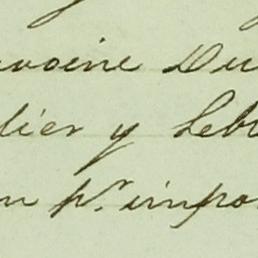 avoine Du
lier y Lebl
n pr. impo